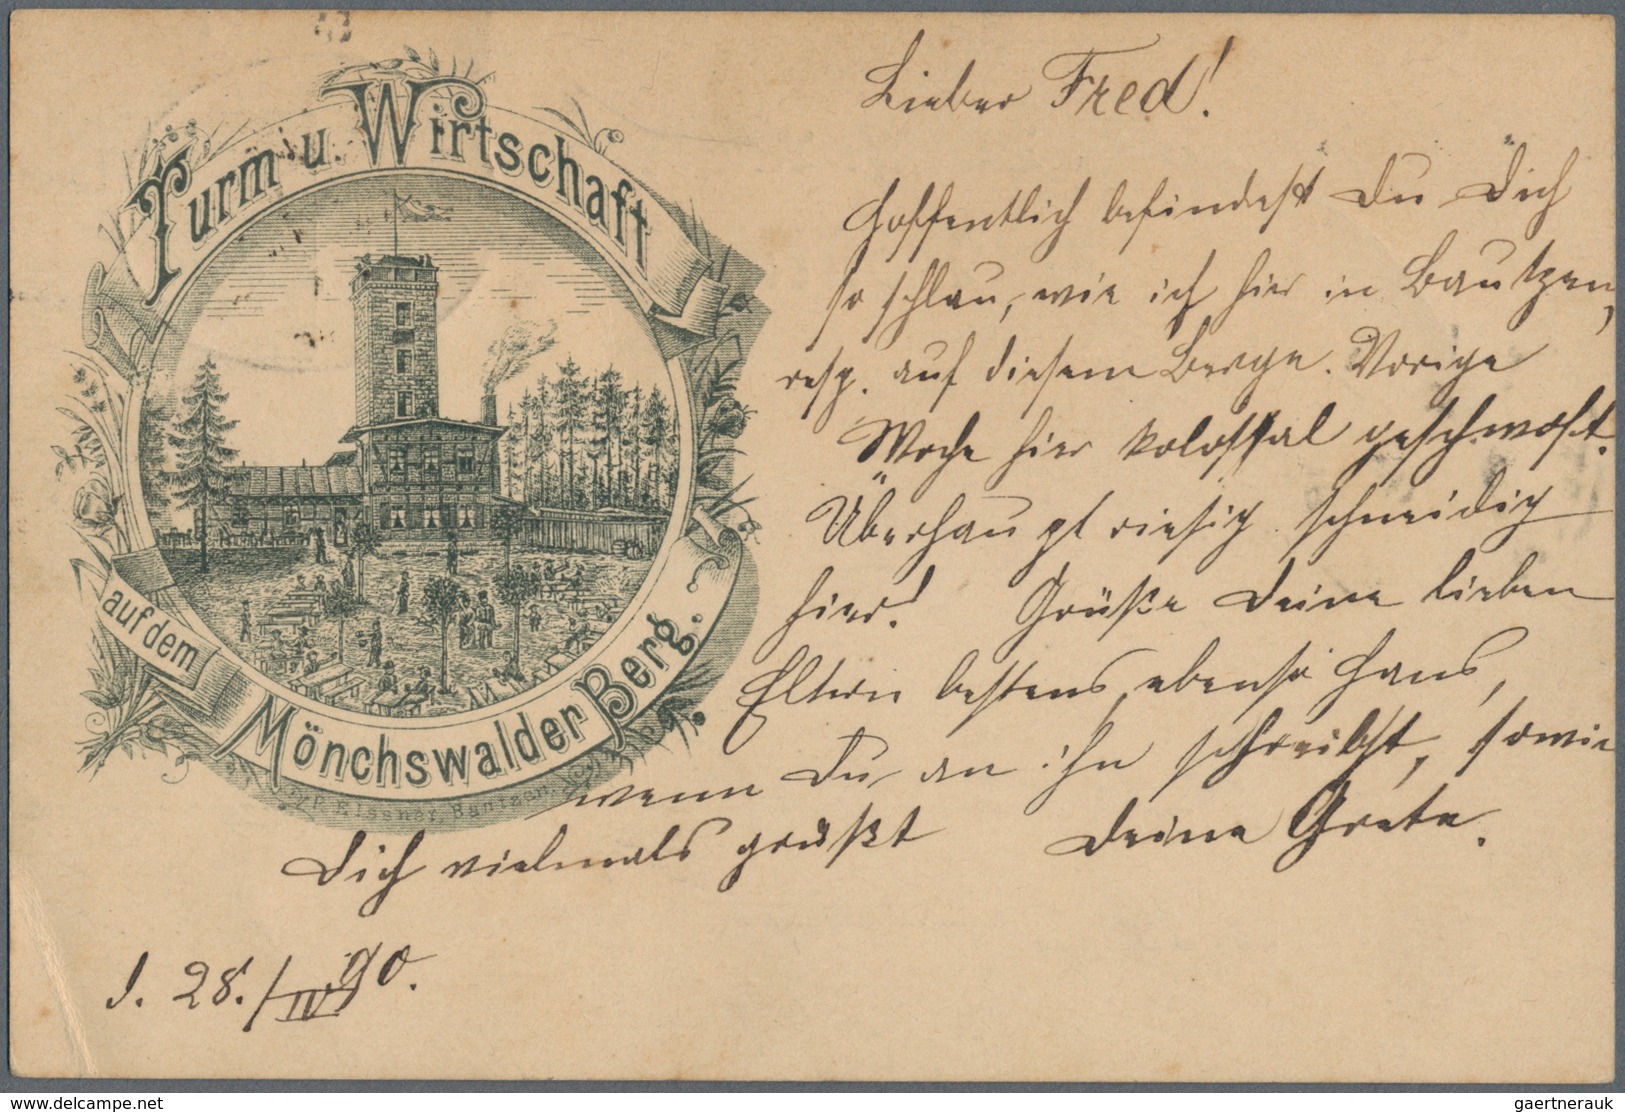 Turm u. Wirtschaft
auf dem
Mönchswalder Berg.
Bautzen.
Lieber Fred!
Hoffentlich befindest Du Dich
so schlau, wie ich hier in Bautzen,
resp. auf diesem Berge. Vorige
Woche hier kolossal geschwoft.
Überhaupt riesig schneidig
hier! Grüße Deine lieben
Eltern bestens, ebenso Hans,
wenn Du an ihn schreibst, sowie
Dich vielmals grüßt Deine Grete.
d. 28./IV 90.
www.delcampe.net
gaertnerauk